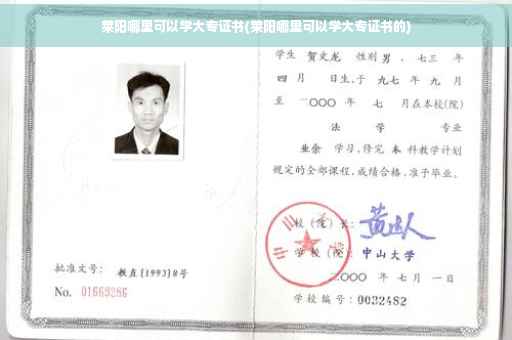 莱阳哪里可以学大专证书(莱阳哪里可以学大专证书的)
学生 贺文龙 性别 男 ，七三 年
四 月 日生，于 九七 年 九 月
至 二〇〇〇 年 七 月在本校(院)
法 学 专业
业余 学习，修完 本 科教学计划
规定的全部课程，成绩合格，准予毕业。
校 (院) 长：
学 校 (院)：中山大学
二〇〇〇 年 七 月 一 日
学校编号：0032482
批准文号： 教直(1993)8号
No. 01669286